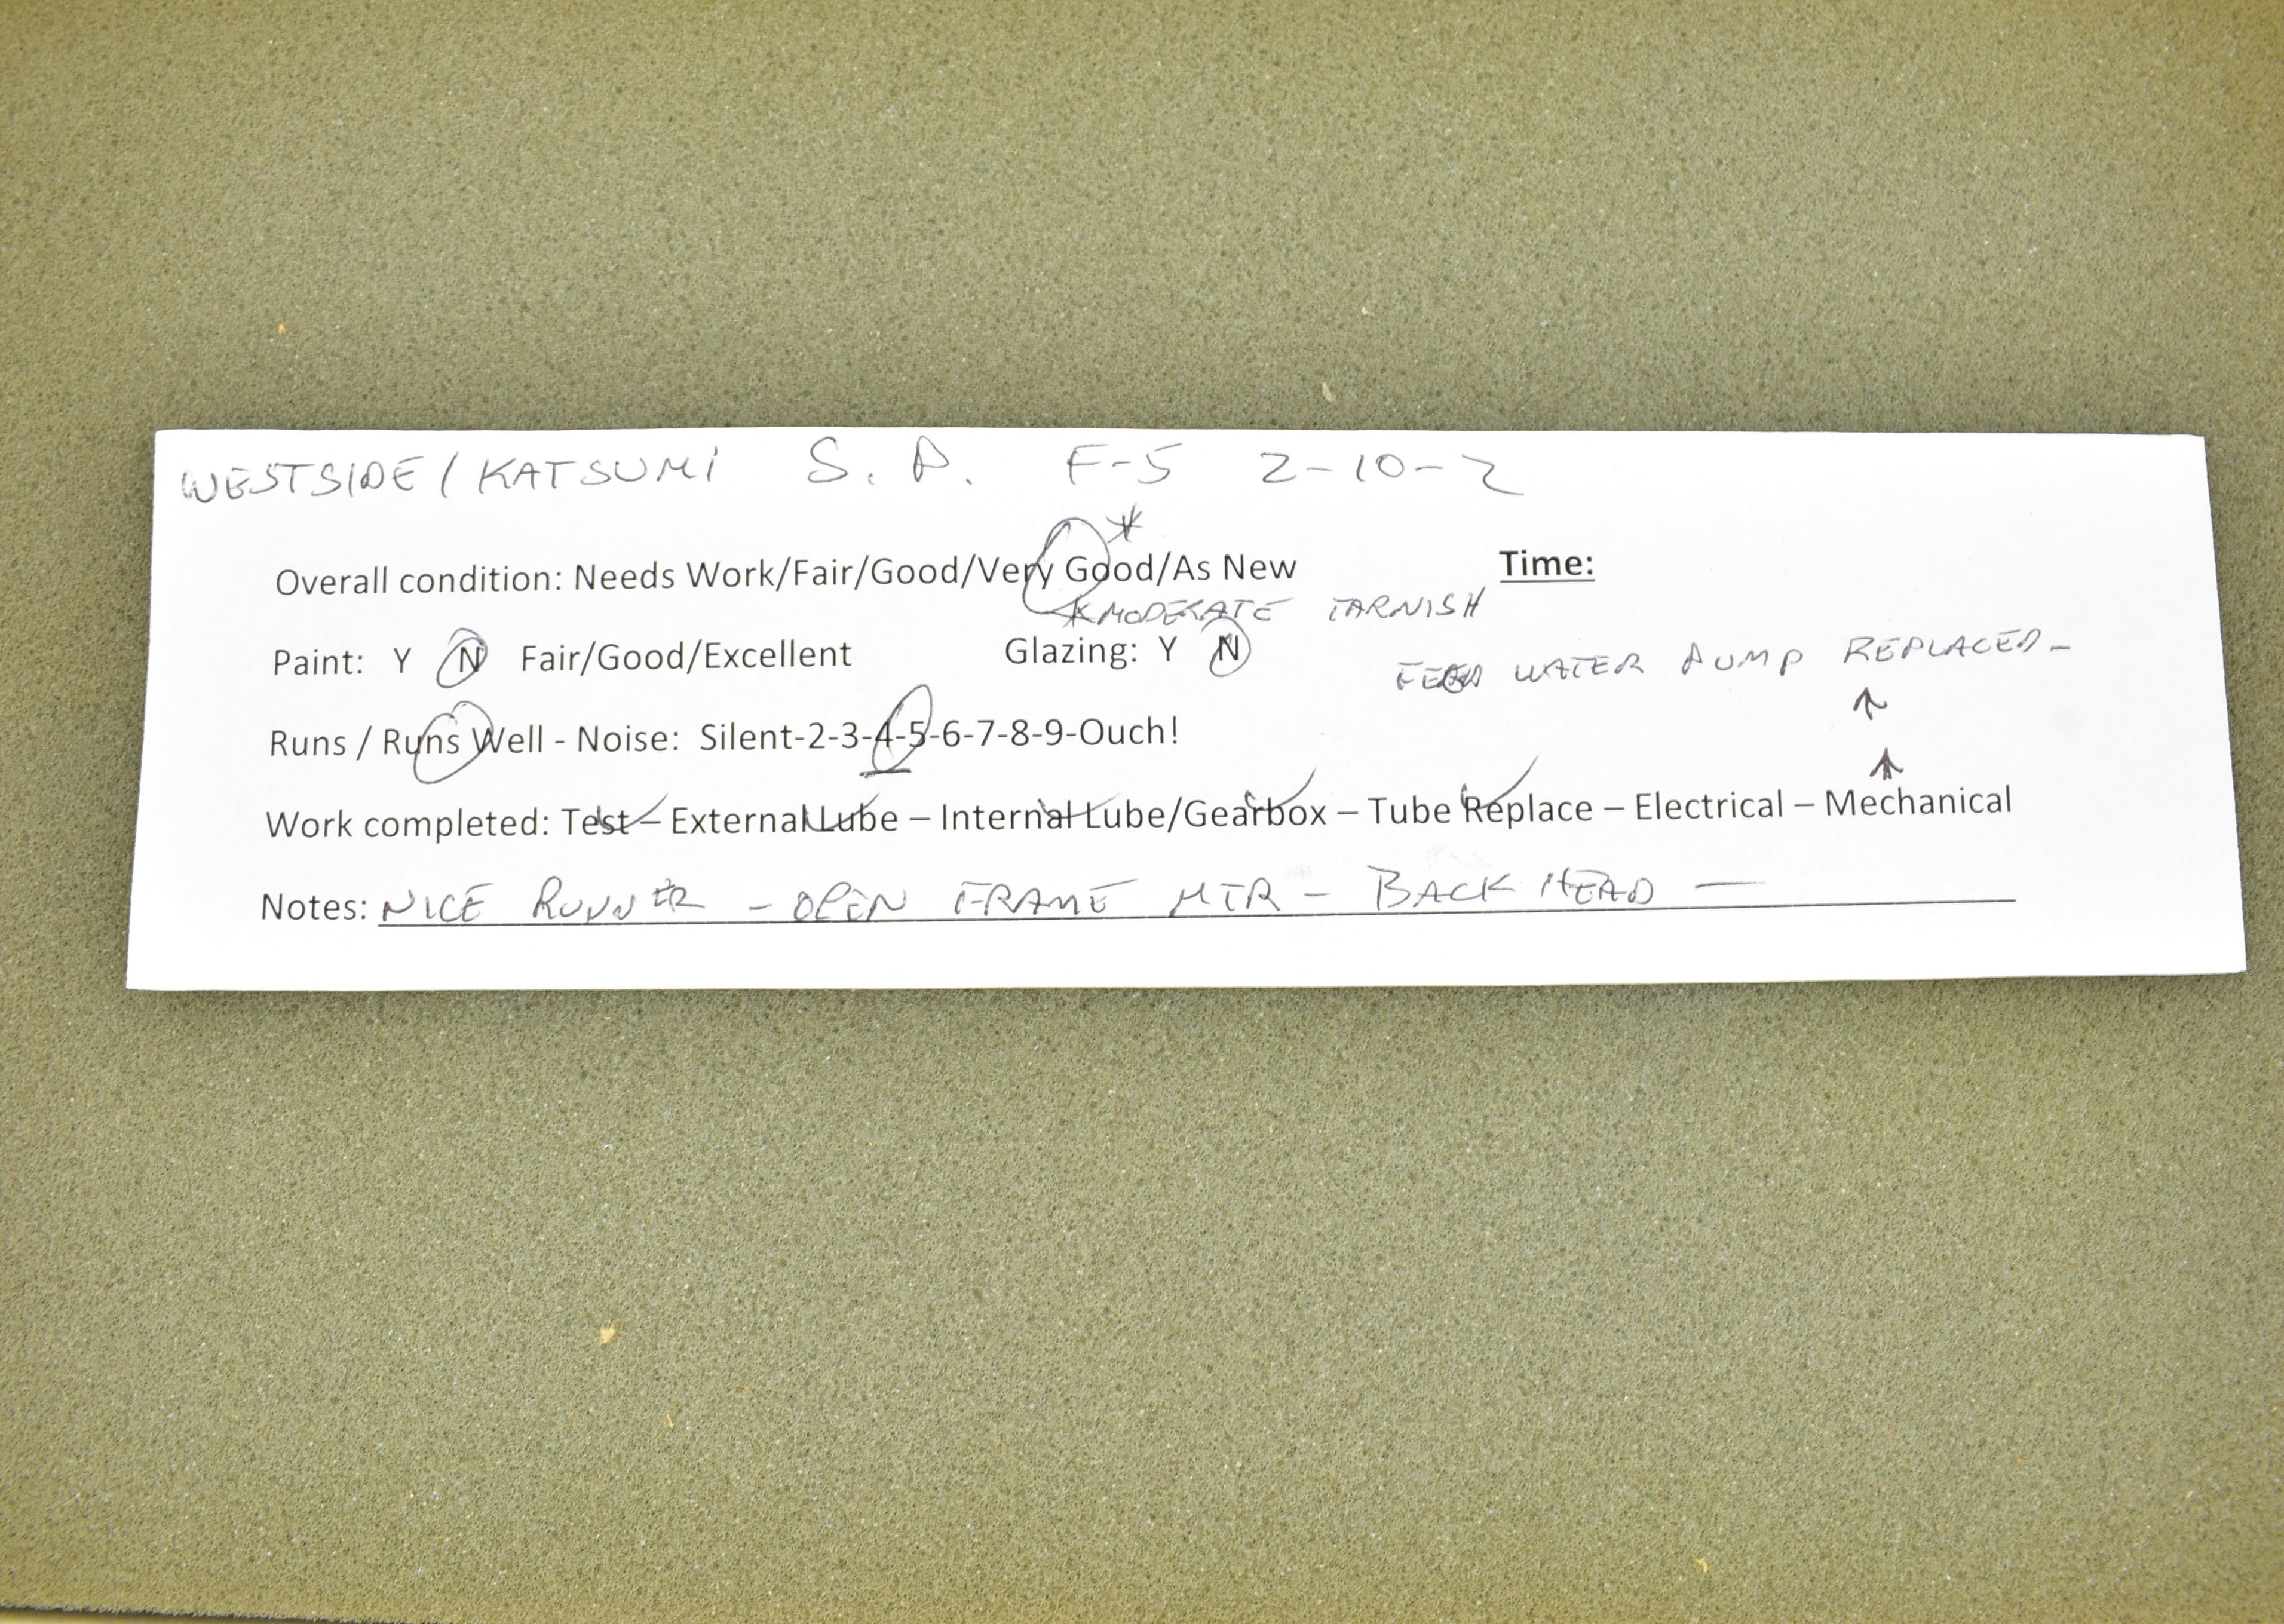 WESTSIDE/KATSUMI S. P. F-5 2-10-2
Overall condition: Needs Work/Fair/Good/Very Good/As New * Time:
*MODERATE TARNISH
Paint: Y N Fair/Good/Excellent Glazing: Y N
FEED WATER PUMP REPLACED-
Runs / Runs Well - Noise: Silent-2-3-4-5-6-7-8-9-Ouch!
Work completed: Test – External Lube – Internal Lube/Gearbox – Tube Replace – Electrical – Mechanical
Notes: NICE RUNNER - OPEN FRAME MTR - BACK HEAD —